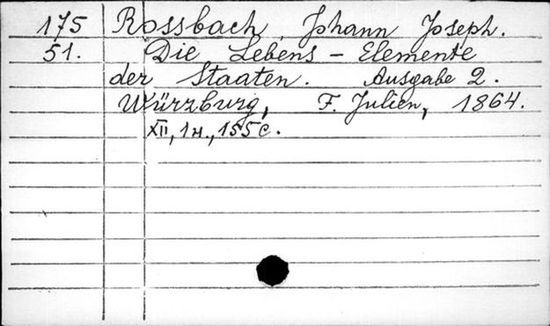 175 Rossbach, Johann Joseph.
51. Die Lebens - Elemente
der Staaten. Ausgabe 2.
Würzburg, F. Julien, 1864.
XII, 1н., 155 с.